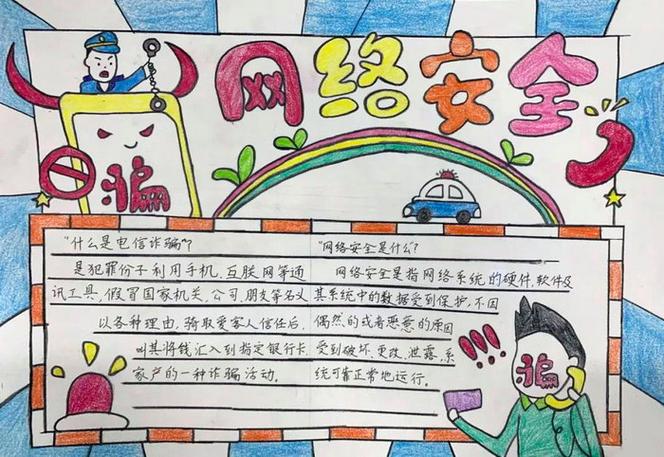 网络安全
骗
"什么是电信诈骗"?
是犯罪份子利用手机、互联网等通
讯工具,假冒国家机关、公司、朋友等名义
以各种理由,骑取爱害人信任后,
叫其将钱汇入到指定银行卡
家户的一种诈骗活动。
"网络安全是什么?
网络安全是指网络系统的硬件,软件及
其系统中的数据受到保护,不因
偶然的或者恶意的原因
受到破坏、更改、泄露,系
统可靠正常地运行。
!!!
骗